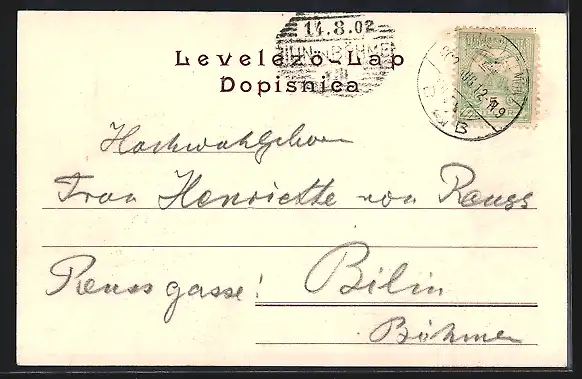 14.8.02
Levelező-Lap
Dopisnica
Hochwohlgeboren
Frau Henriette von Reuss
Reussgasse!
Bilin
Böhmen